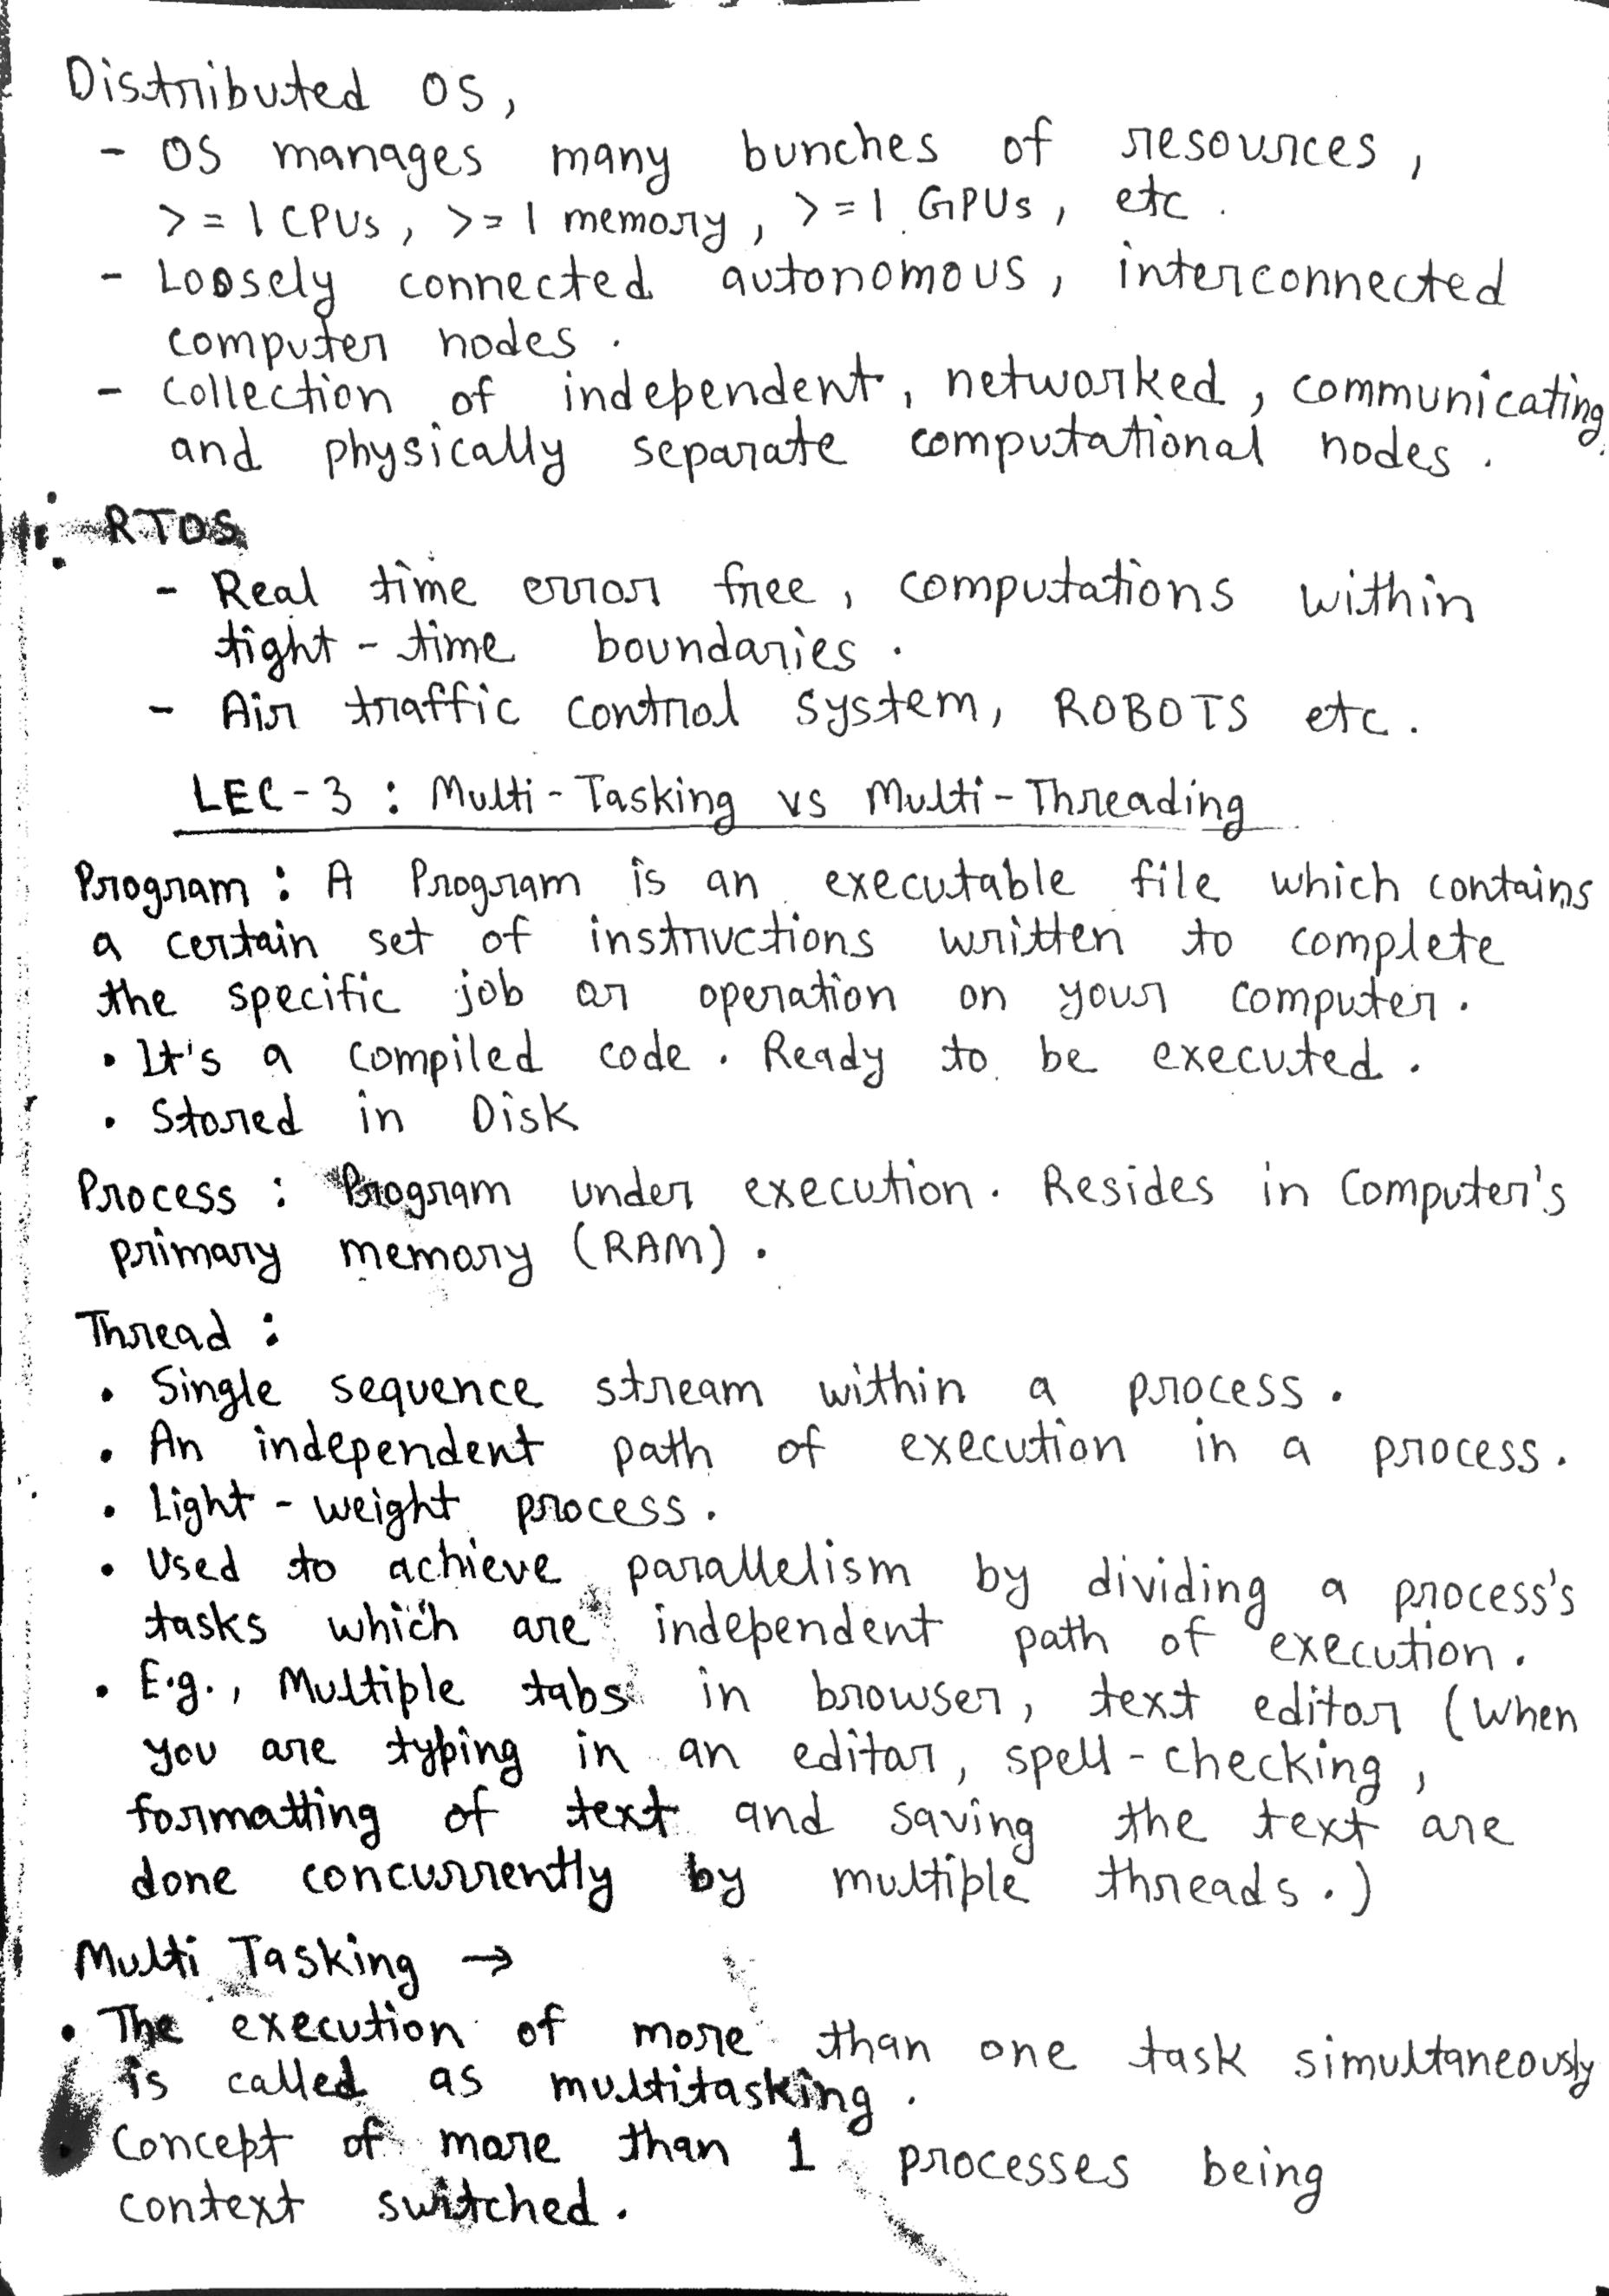 Distributed OS,
- OS manages many bunches of resources,
>=1 CPUs, >=1 memory, >=1 GPUs, etc.
- Loosely connected autonomous, interconnected
computer nodes.
- Collection of independent, networked, communicating,
and physically separate computational nodes.
RTOS
- Real time error free, computations within
tight-time boundaries.
- Air traffic control system, ROBOTS etc.
LEC-3: Multi-Tasking vs Multi-Threading
Program: A Program is an executable file which contains
a certain set of instructions written to complete
the specific job or operation on your computer.
• It's a compiled code. Ready to be executed.
• Stored in Disk
Process: Program under execution. Resides in Computer's
primary memory (RAM).
Thread:
• Single sequence stream within a process.
• An independent path of execution in a process.
• Light-weight process.
• Used to achieve parallelism by dividing a process's
tasks which are independent path of execution.
• E.g., Multiple tabs in browser, text editor (When
you are typing in an editor, spell-checking,
formatting of text and saving the text are
done concurrently by multiple threads.)
Multi Tasking →
• The execution of more than one task simultaneously
is called as multitasking.
• Concept of more than 1 processes being
context switched.